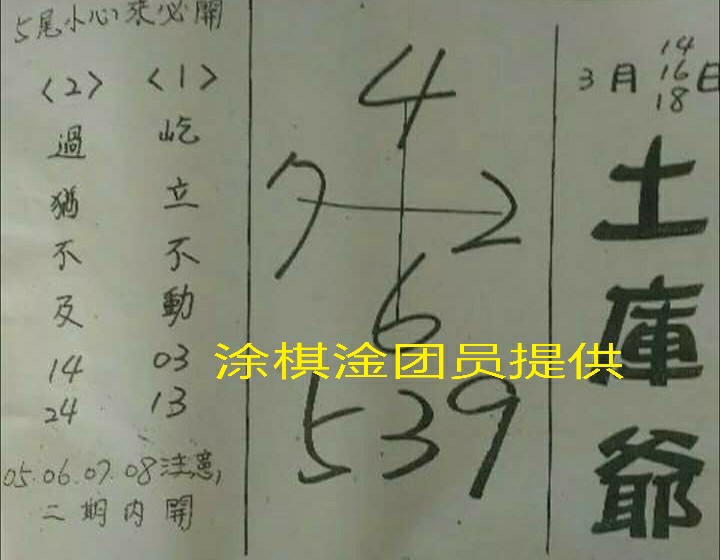 3月 14 16 18 日
土庫爺
4
7 2
6
539
涂棋淦团员提供
5尾小心来必開
<1>
屹立不動
03
13
<2>
過猶不及
14
24
05.06.07.08注意,
二期内開